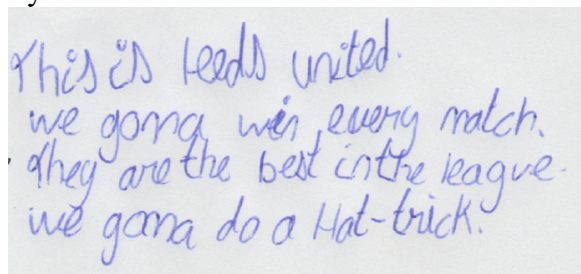 This is Leeds united.
we gonna win every match.
They are the best in the league.
we gonna do a Hat-trick.